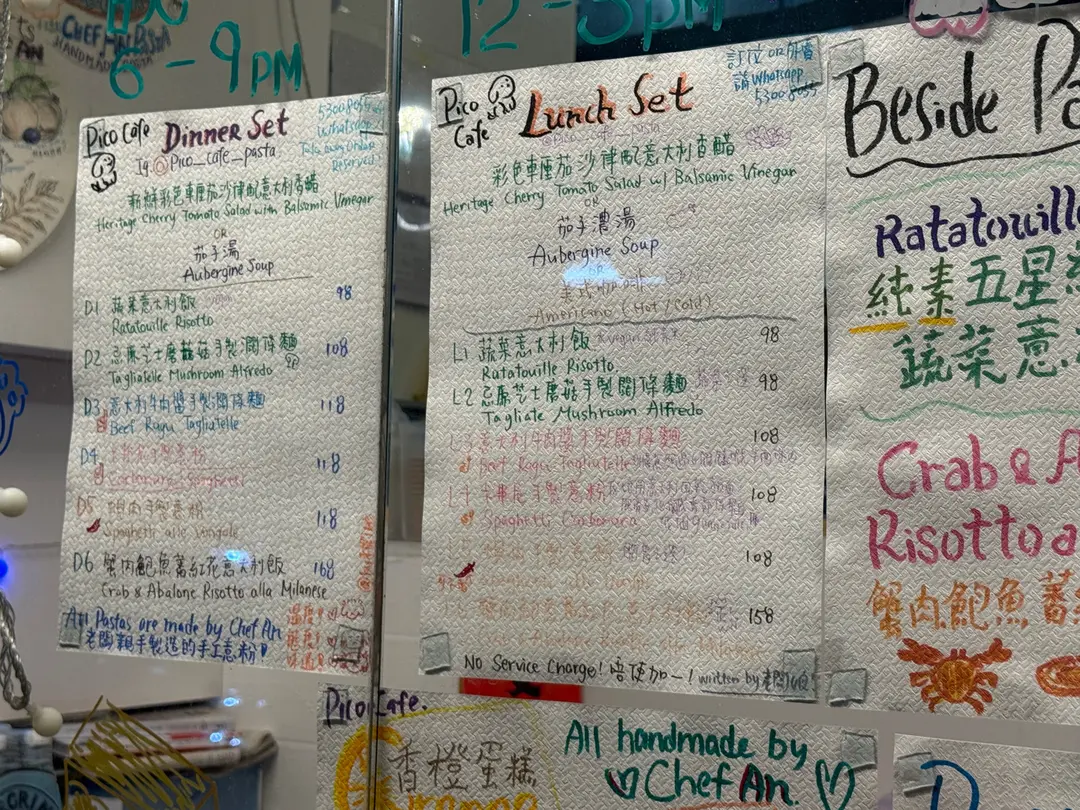 CHEF
HANDMADE
6-9PM
12-3PM
Pico Cafe Dinner Set
Ig. @Pico_cafe_pasta
Whatsapp
新鮮彩色車厘茄沙律配意大利香醋
Heritage Cherry Tomato Salad with Balsamic Vinegar
OR
茄子湯
Aubergine Soup
D1 蔬菜意大利飯 98
Ratatouille Risotto
D2 忌廉芝士磨菇手製闊條麵 108
Tagliatelle Mushroom Alfredo
D3 意大利牛肉醬手製闊條麵 118
Beef Ragu Tagliatelle
D4 118
Carbonara Spaghetti
D5 蜆肉手製意粉 118
Spaghetti alle Vongole
D6 蟹肉鮑魚蕃紅花意大利飯 168
Crab & Abalone Risotto alla Milanese
All Pastas are made by Chef An
老闆親手製造的手工意粉
Pico Cafe Lunch Set
訂位 or 外賣
請 Whatsapp
彩色車厘茄沙律配意大利香醋
Heritage Cherry Tomato Salad w/ Balsamic Vinegar
OR
茄子濃湯
Aubergine Soup
OR
美式
Americano (Hot/Cold)
L1 蔬菜意大利飯 98
Ratatouille Risotto
L2 忌廉芝士磨菇手製闊條麵 98
Tagliate Mushroom Alfredo
L3 意大利牛肉醬手製闊條麵 108
Beef Ragu Tagliatelle
L4 手製意粉 108
Spaghetti Carbonara
108
158
No Service Charge! 唔使加一! written by
Beside
Ratatouille
純素五星
蔬菜意
Crab &
Risotto
蟹肉鮑魚蕃
Pico Cafe.
香橙蛋糕
Orange
All handmade by
Chef An.